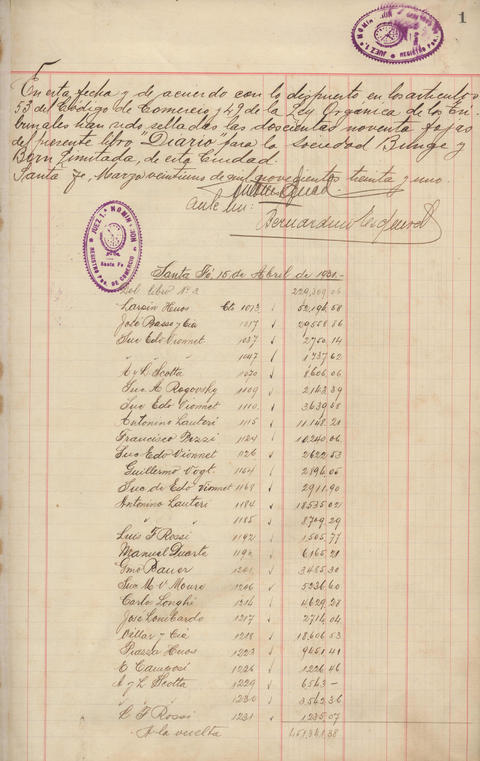 1
JUEZ 1ª NOMINACION
REGISTRO PCO.
En esta fecha y de acuerdo con lo dispuesto en los artículos
53 del Código de Comercio y 29 de la Ley Orgánica de los Tri-
bunales han sido selladas las doscientas noventa fojas
del presente libro "Diario" para la Sociedad Bunge y
Born Limitada, de esta Ciudad.
Santa Fe, Marzo veintiuno de mil novecientos treinta y uno.
Ante mi:
JUEZ 1ª NOMINACION
Santa Fe
REGISTRO PCO. DE COMERCIO
Santa Fé, 15 de Abril de 1931.-
Del libro Nº 2 229,309,06
Larpin Hnos Cte 1013 52,194,58
José Basso y Cia 1017 29,558,36
Suc Edo Vionnet 1037 2750,14
" " 1047 1737,62
A y L Scotta 1050 8606,06
Suc. A. Rogovsky 1109 2143,39
Suc Edo Vionnet 1110 3639,58
Antonino Lauteri 1115 11,148,21
Francisco Pizzi 1124 10,240,06
Suc Edo Vionnet 1126 2622,53
Guillermo Vogt. 1164 2896,05
Suc. de Edo Vionnet 1168 2911,90
Antonino Lauteri 1184 18535,01
" " 1185 8709,29
Luis F Rossi 1192 1505,77
Manuel Duarte 6165,21
Gmo Bauer 1201 3485,30
Suc M. V Moure 1206 5236,60
Carlos Longhi 1214 4629,28
José Lombardo 1217 2714,04
Villar y Cia 1218 18,606,53
Piazza Hnos 1223 9451,41
E Camposi 1226 1226,46
A y L Scotta 1229 6543,-
" " 1230 3,542,36
L F Rossi 1231 1235,07
A la vuelta 451,341,38